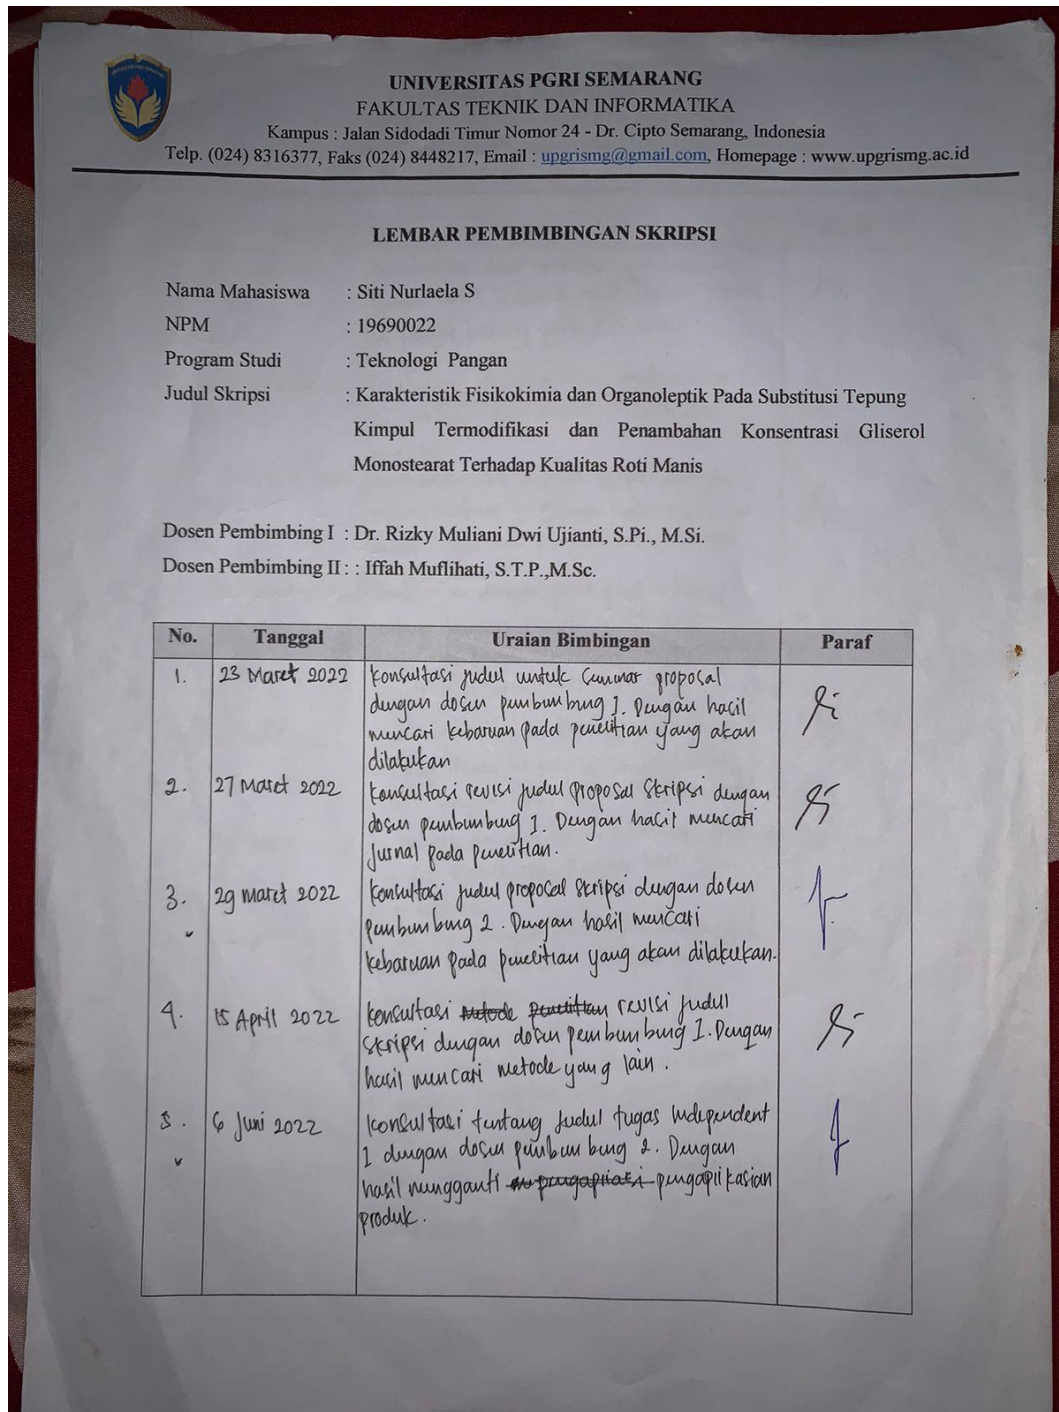 UNIVERSITAS PGRI SEMARANG
FAKULTAS TEKNIK DAN INFORMATIKA
Kampus : Jalan Sidodadi Timur Nomor 24 - Dr. Cipto Semarang, Indonesia
Telp. (024) 8316377, Faks (024) 8448217, Email : upgrismg@gmail.com, Homepage : www.upgrismg.ac.id
LEMBAR PEMBIMBINGAN SKRIPSI
Nama Mahasiswa : Siti Nurlaela S
NPM : 19690022
Program Studi : Teknologi Pangan
Judul Skripsi : Karakteristik Fisikokimia dan Organoleptik Pada Substitusi Tepung
Kimpul Termodifikasi dan Penambahan Konsentrasi Gliserol
Monostearat Terhadap Kualitas Roti Manis
Dosen Pembimbing I : Dr. Rizky Muliani Dwi Ujianti, S.Pi., M.Si.
Dosen Pembimbing II : : Iffah Muflihati, S.T.P.,M.Sc.
No. Tanggal Uraian Bimbingan Paraf
1. 23 Maret 2022 Konsultasi judul untuk seminar proposal
dengan dosen pembimbing 1. Dengan hasil
mencari kebaruan pada penelitian yang akan
dilakukan
2. 27 Maret 2022 Konsultasi revisi judul proposal skripsi dengan
dosen pembimbing 1. Dengan hasil mencari
jurnal pada penelitian.
3. 29 Maret 2022 Konsultasi judul proposal skripsi dengan dosen
pembimbing 2. Dengan hasil mencari
kebaruan pada penelitian yang akan dilakukan.
4. 15 April 2022 Konsultasi metode penelitian revisi judul
skripsi dengan dosen pembimbing 1. Dengan
hasil mencari metode yang lain.
5. 6 Juni 2022 Konsultasi tentang judul tugas independent
1 dengan dosen pembimbing 2. Dengan
hasil mengganti pengaplikasian
produk.